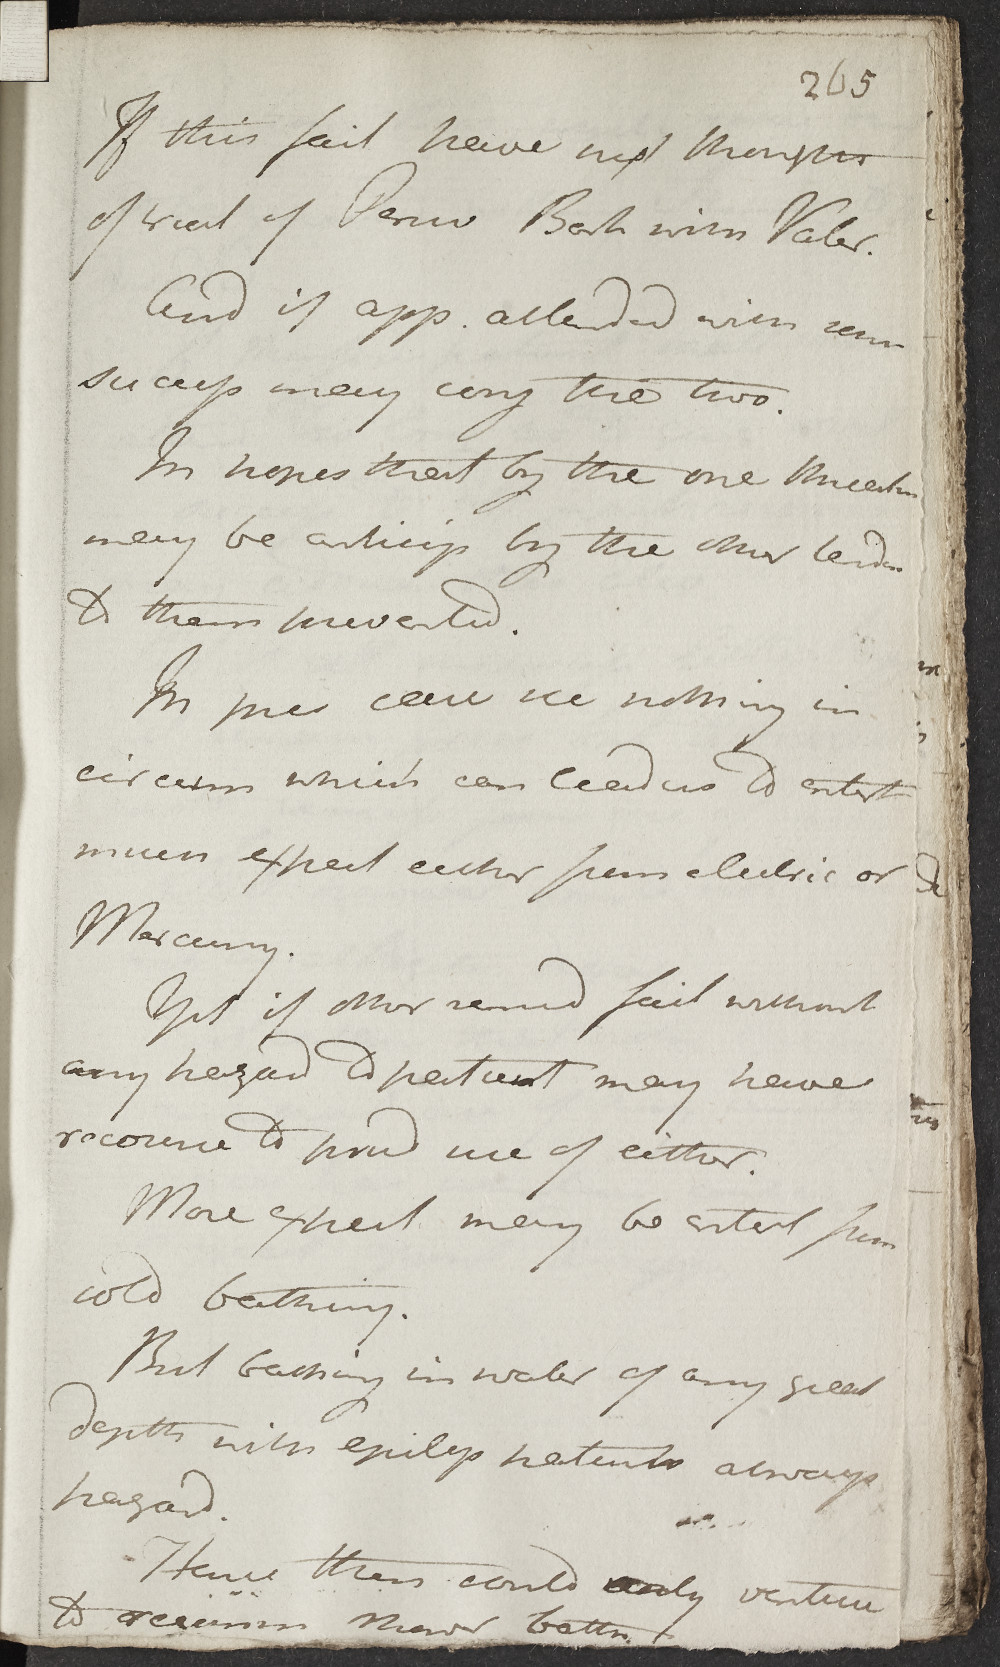 265
If this fail have next thoughts
of trial of Peruv Bark with Valer.
And if app. attended with
success may conj the two.
In hopes that by the one
may be anticip by the other
to them prevented.
In pres case see nothing in
circum which can lead us to entert
much expect either from electric or
Mercury.
Yet if other remed fail without
any hazard to patient may have
recourse to prud use of either.
More expect may be entert from
cold bathing.
But bathing in water of any great
depth with epilep patients always
hazard.
Hence then could only venture
to recomm shower bath.